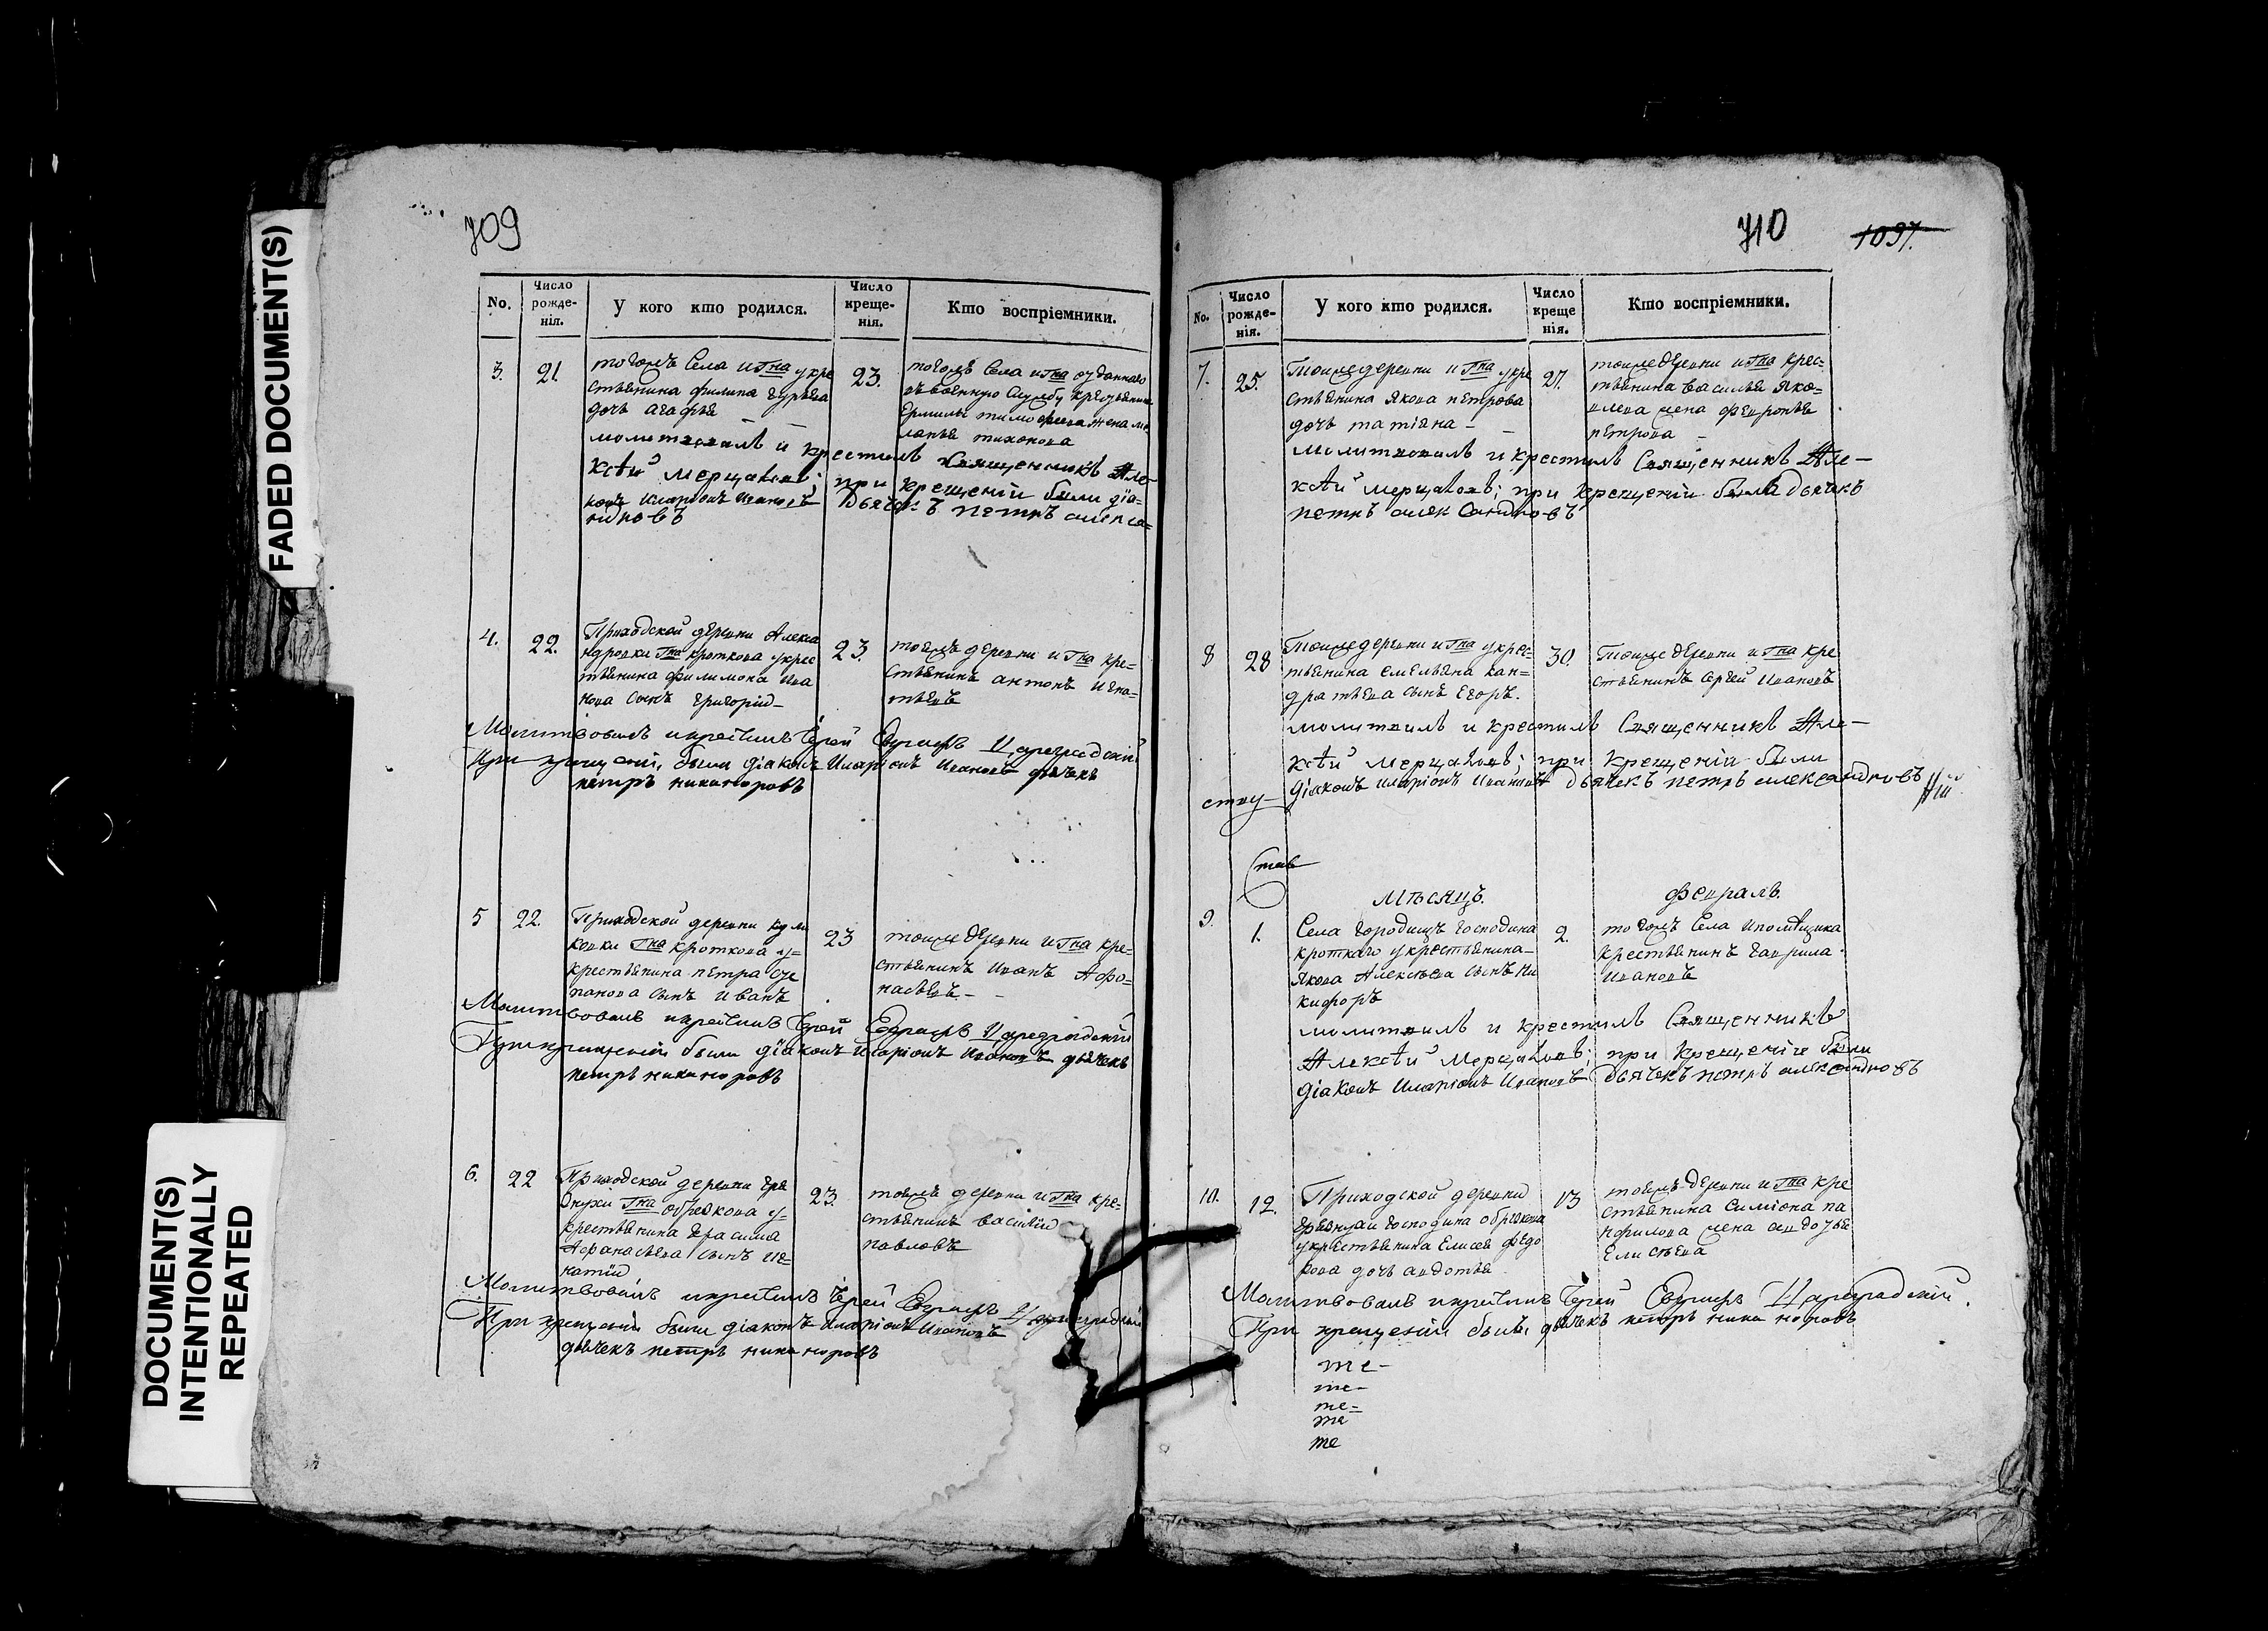 FADED DOCUMENT(S)
DOCUMENT(S)
INTENTIONALLY
REPEATED
709
No.
Число рожде-нія.
У кого кто родился.
Число креще-нія.
Кто воспріемники.
3.
21.
тогожъ Села и Гна укре
стьянина филипа гурьева
дочь агафья
23.
тогожъ Села и Гна отданнаго
въ военную службу крестьянина
ермилы тимофеева жена ма
ланья тихонова
молитвовалъ и крестилъ Священникъ Але-
ксѣй мерцаловъ; при крещеніи были діа=
конъ иларіонъ Ивановъ Дьячекъ петръ алекса=
ндровъ
4.
22.
Приходской деревни Алекса
ндровки Гна кроткова у крес
тьянина филимона Ива
нова сынъ григорій
23.
тояжъ деревни и Гна кре=
стьянинъ антонъ игна=
тьевъ
Молитвовалъ и крестилъ Іерей Евграфъ Цареградскій
При крещеніи были діаконъ Иларіонъ Ивановъ дьячекъ
петръ никаноровъ
5
22.
Приходской деревни
Гна кроткова у=
крестьянина петра сте
панова сынъ иванъ
23
тояже деревни и Гна кре=
стьянинъ Иванъ Афо=
насьевъ
Молитвовалъ и крестилъ Іерей Евграфъ Цареградскій
При крещеніи были діаконъ Иларіонъ Ивановъ дьячекъ
петръ никаноровъ
6.
22
Приходской деревни гря
знухи Гна обрескова у=
крестьянина герасима
Афанасьева сынъ иг=
натій
23.
тояжъ деревни и Гна кре=
стьянинъ василій
павловъ
Молитвовалъ и крестилъ Іерей Евграфъ Цареградскій
При крещеніи были діаконъ иларіонъ Ивановъ
дьячекъ петръ никаноровъ
710
1097.
No.
Число рожде-нія.
У кого кто родился.
Число креще нія.
Кто воспріемники.
7.
25.
Тоиже деревни и Гна укре
стьянина якова петрова
дочь татіяна
27.
тоиже деревни и Гна крес=
тьянина василья яко=
влева жена февронья
петрова
молитвовалъ и крестилъ Священникъ Але-
ксѣй мерцаловъ; при крещеніи былъ дьячекъ
петръ александровъ
8
28
Тоиже деревни и Гна укрес=
тьянина емельяна кан=
дратьева сынъ егоръ.
30.
Тоиже деревни и Гна кре
стьянинъ сергей Ивановъ
молитвилъ и крестилъ Священникъ Але-
ксѣй мерцаловъ; при крещеніи были
діаконъ иларіонъ Ивановъ дьячекъ петръ александровъ
мѣсяцъ.
февраль.
9.
1.
Села городищъ господина
кроткаго у крестьянина
якова Алексѣева сынъ ни
кифоръ
2.
тогожъ Села и помѣщика
крестьянинъ гаврила
ивановъ
молитвилъ и крестилъ Священникъ
Алексѣй мерцаловъ; при крещеніи были
діаконъ иларіонъ Ивановъ Дьячекъ петръ александровъ
10.
12.
Приходской деревни
грязнухи господина обрескова
у крестьянина Елисея федо
рова дочь авдотья
13
тояжъ деревни и Гна кре
стьянина симіона па
нфилова жена авдотья
Елисѣева
Молитвовалъ и крестилъ Іерей Евграфъ Цареградскій.
При крещеніи былъ дьячекъ петръ никаноровъ
те-
те-
те=
те
те